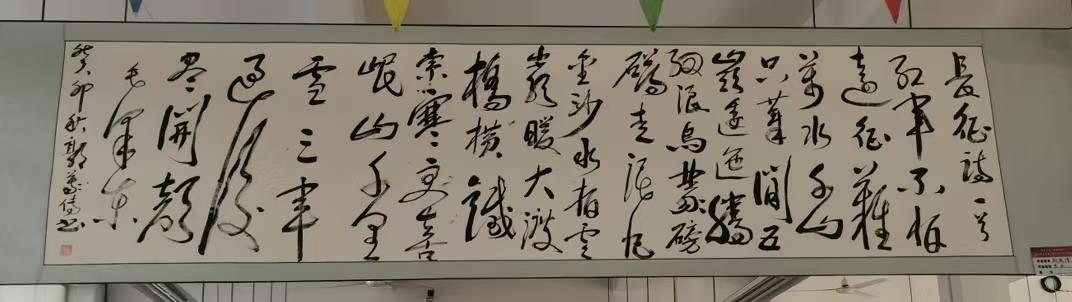 長征詩一首
紅軍不怕
遠征難
萬水千山
只等閒五
嶺逶迤騰
細浪烏蒙磅
礴走泥丸
金沙水拍雲
崖暖大渡
橋橫鐵
索寒更喜
岷山千里
雪三軍
過後
盡開顏
毛澤東
癸卯秋郭書